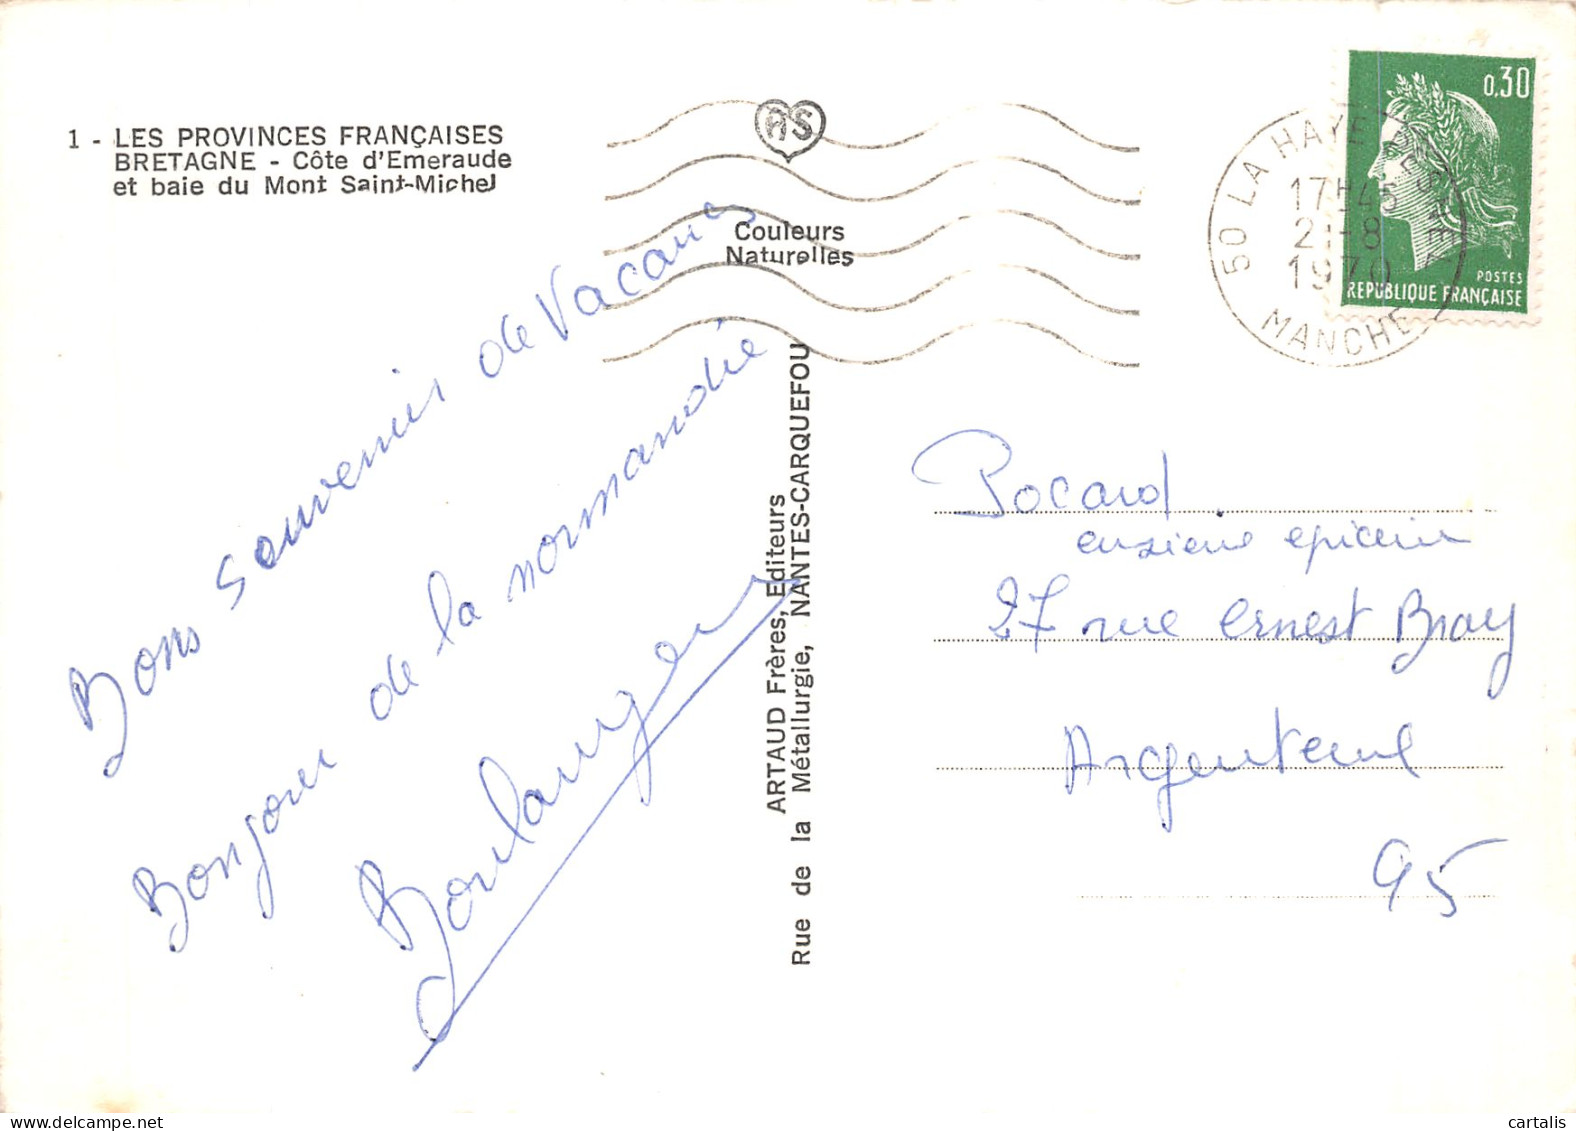 1 - LES PROVINCES FRANÇAISES
BRETAGNE - Côte d'Emeraude
et baie du Mont Saint-Michel
AS
Couleurs
Naturelles
0,30
POSTES
REPUBLIQUE FRANÇAISE
50 LA HAYE PESNEL
17H45
21-8
1970
MANCHE
Bons souvenirs de Vacances
Bonjour de la normandie
Boulanger
ARTAUD Frères, Editeurs
Rue de la Métallurgie, NANTES-CARQUEFOU
Pocard
ensiene epicerie
27 rue Ernest Bray
Argenteuil
95
cartalis